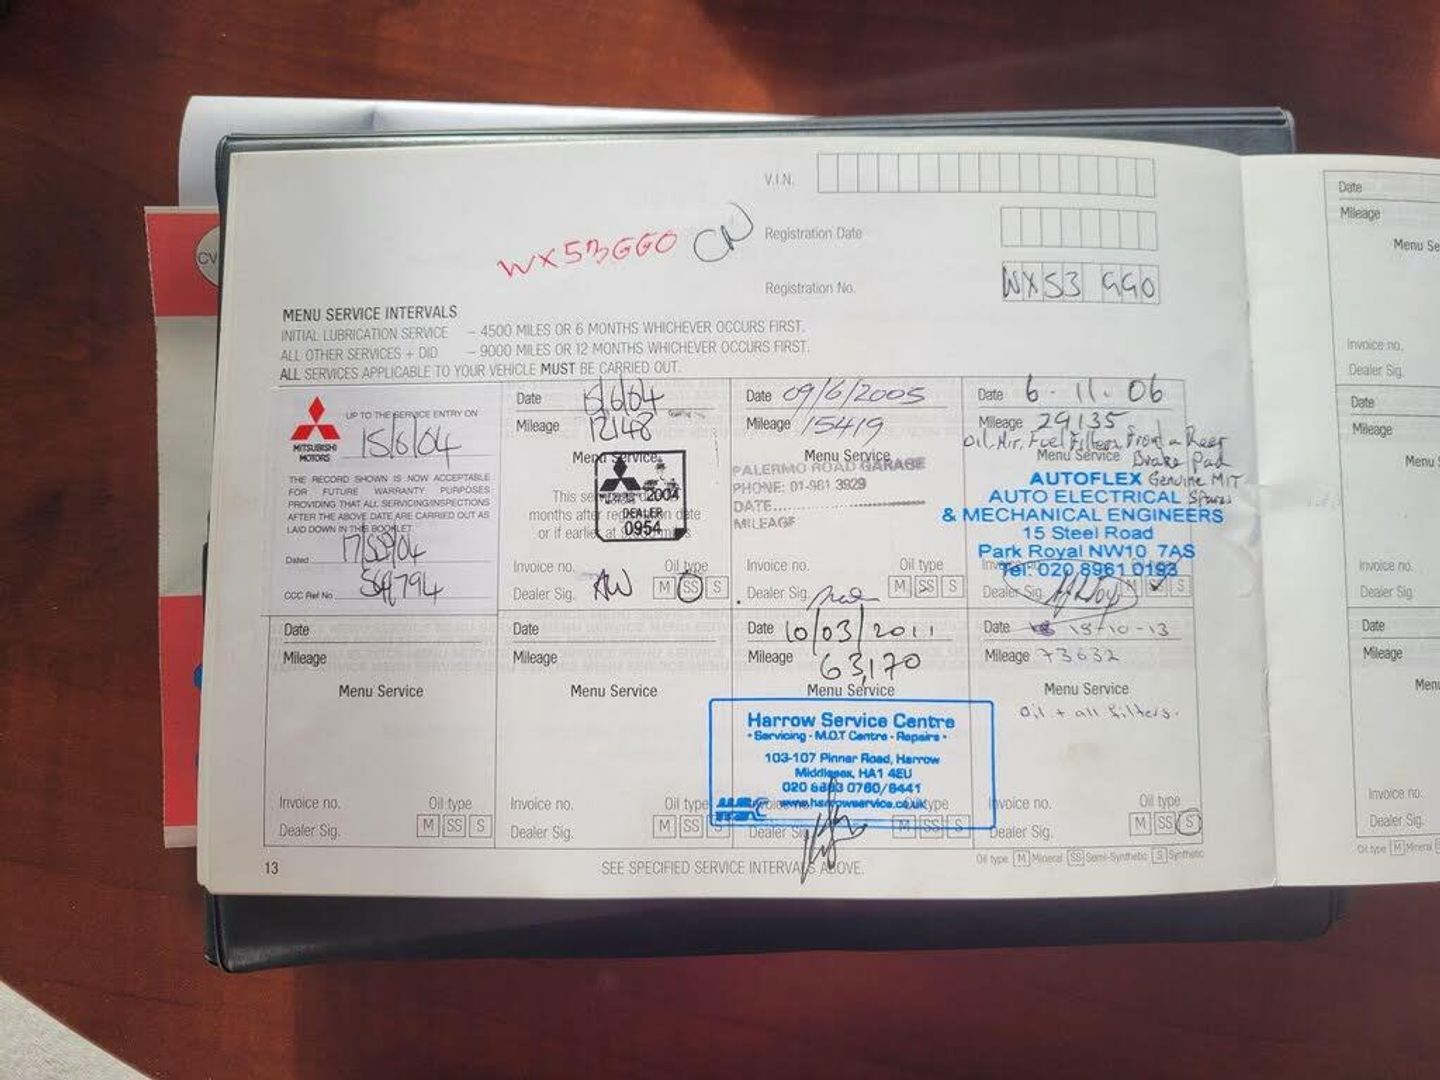 V.I.N.
WX53GGO CN
Registration Date
Registration No. WX53 GGO
MENU SERVICE INTERVALS
INITIAL LUBRICATION SERVICE – 4500 MILES OR 6 MONTHS WHICHEVER OCCURS FIRST.
ALL OTHER SERVICES + DID – 9000 MILES OR 12 MONTHS WHICHEVER OCCURS FIRST.
ALL SERVICES APPLICABLE TO YOUR VEHICLE MUST BE CARRIED OUT.
MITSUBISHI
MOTORS
UP TO THE SERVICE ENTRY ON
15/6/04
THE RECORD SHOWN IS NOW ACCEPTABLE
FOR FUTURE WARRANTY PURPOSES
PROVIDING THAT ALL SERVICING/INSPECTIONS
AFTER THE ABOVE DATE ARE CARRIED OUT AS
LAID DOWN IN THIS BOOKLET
Dated
CCC Ref No
Date 15/6/04
Mileage 12148
Menu Service
This
months after date
or if earlier at
2004
DEALER
0954
Invoice no. Oil type
Dealer Sig. AW M SS S
Date 09/6/2005
Mileage 15419
Menu Service
PALERMO ROAD GARAGE
PHONE: 01-981 3929
DATE
MILEAGE
Invoice no. Oil type
Dealer Sig. M SS S
Date 6-11.06
Mileage 29135
Oil, Air, Fuel Filters Front a Rear
Menu Service Brake Pad
AUTOFLEX Genuine MIT
AUTO ELECTRICAL Spares
& MECHANICAL ENGINEERS
15 Steel Road
Park Royal NW10 7AS
Tel: 020 8961 0193
Dealer Sig. M S
Date
Mileage
Menu Service
Invoice no. Oil type
Dealer Sig. M SS S
Date
Mileage
Menu Service
Invoice no. Oil type
Dealer Sig. M SS S
Date 10/03/2011
Mileage 63,170
Menu Service
Harrow Service Centre
• Servicing - M.O.T Centre - Repairs •
103-107 Pinner Road, Harrow
Middlesex, HA1 4EU
020 8863 0760/8441
www.harrowservice.co.uk
Dealer Sig M SS S
Date 18-10-13
Mileage 73632
Menu Service
Oil + all filters.
Invoice no. Oil type
Dealer Sig. M SS S
13
SEE SPECIFIED SERVICE INTERVALS ABOVE.
Oil type M Mineral SS Semi-Synthetic S Synthetic
Date
Mileage
Menu Se
Invoice no.
Dealer Sig.
Date
Mileage
Menu S
Invoice no.
Dealer Sig.
Date
Mileage
Menu
Invoice no.
Dealer Sig.
Oil type M Mineral
CV